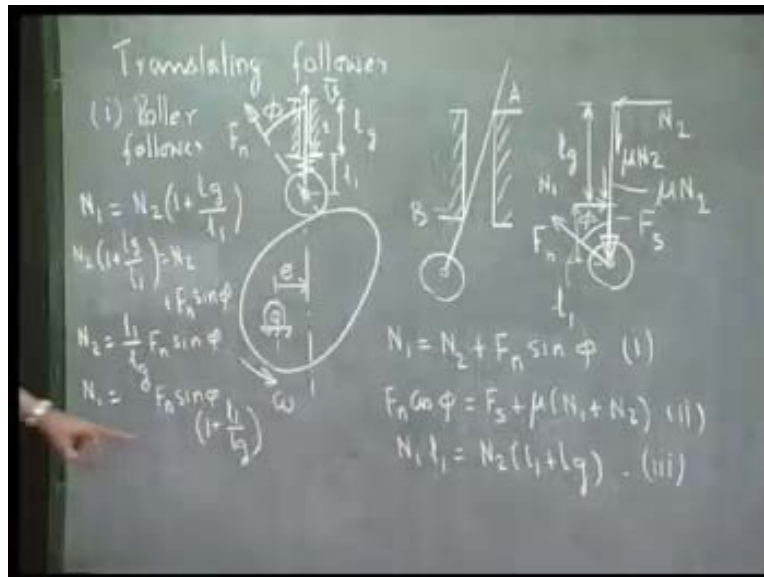 Translating follower
(i) Roller
follower
F_n φ l_g
l_1
N_1 = N_2 (1 + l_g/l_1)
N_2 (1 + l_g/l_1) = N_2
+ F_n sin φ
N_2 = l_1/l_g F_n sin φ
N_1 = F_n sin φ
(1 + l_1/l_g)
e
ω
A
B
l_g N_2
μN_2
N_1 μN_2
F_n φ F_s
l_1
N_1 = N_2 + F_n sin φ (i)
F_n cos φ = F_s + μ(N_1 + N_2) (ii)
N_1 l_1 = N_2 (l_1 + l_g) - (iii)